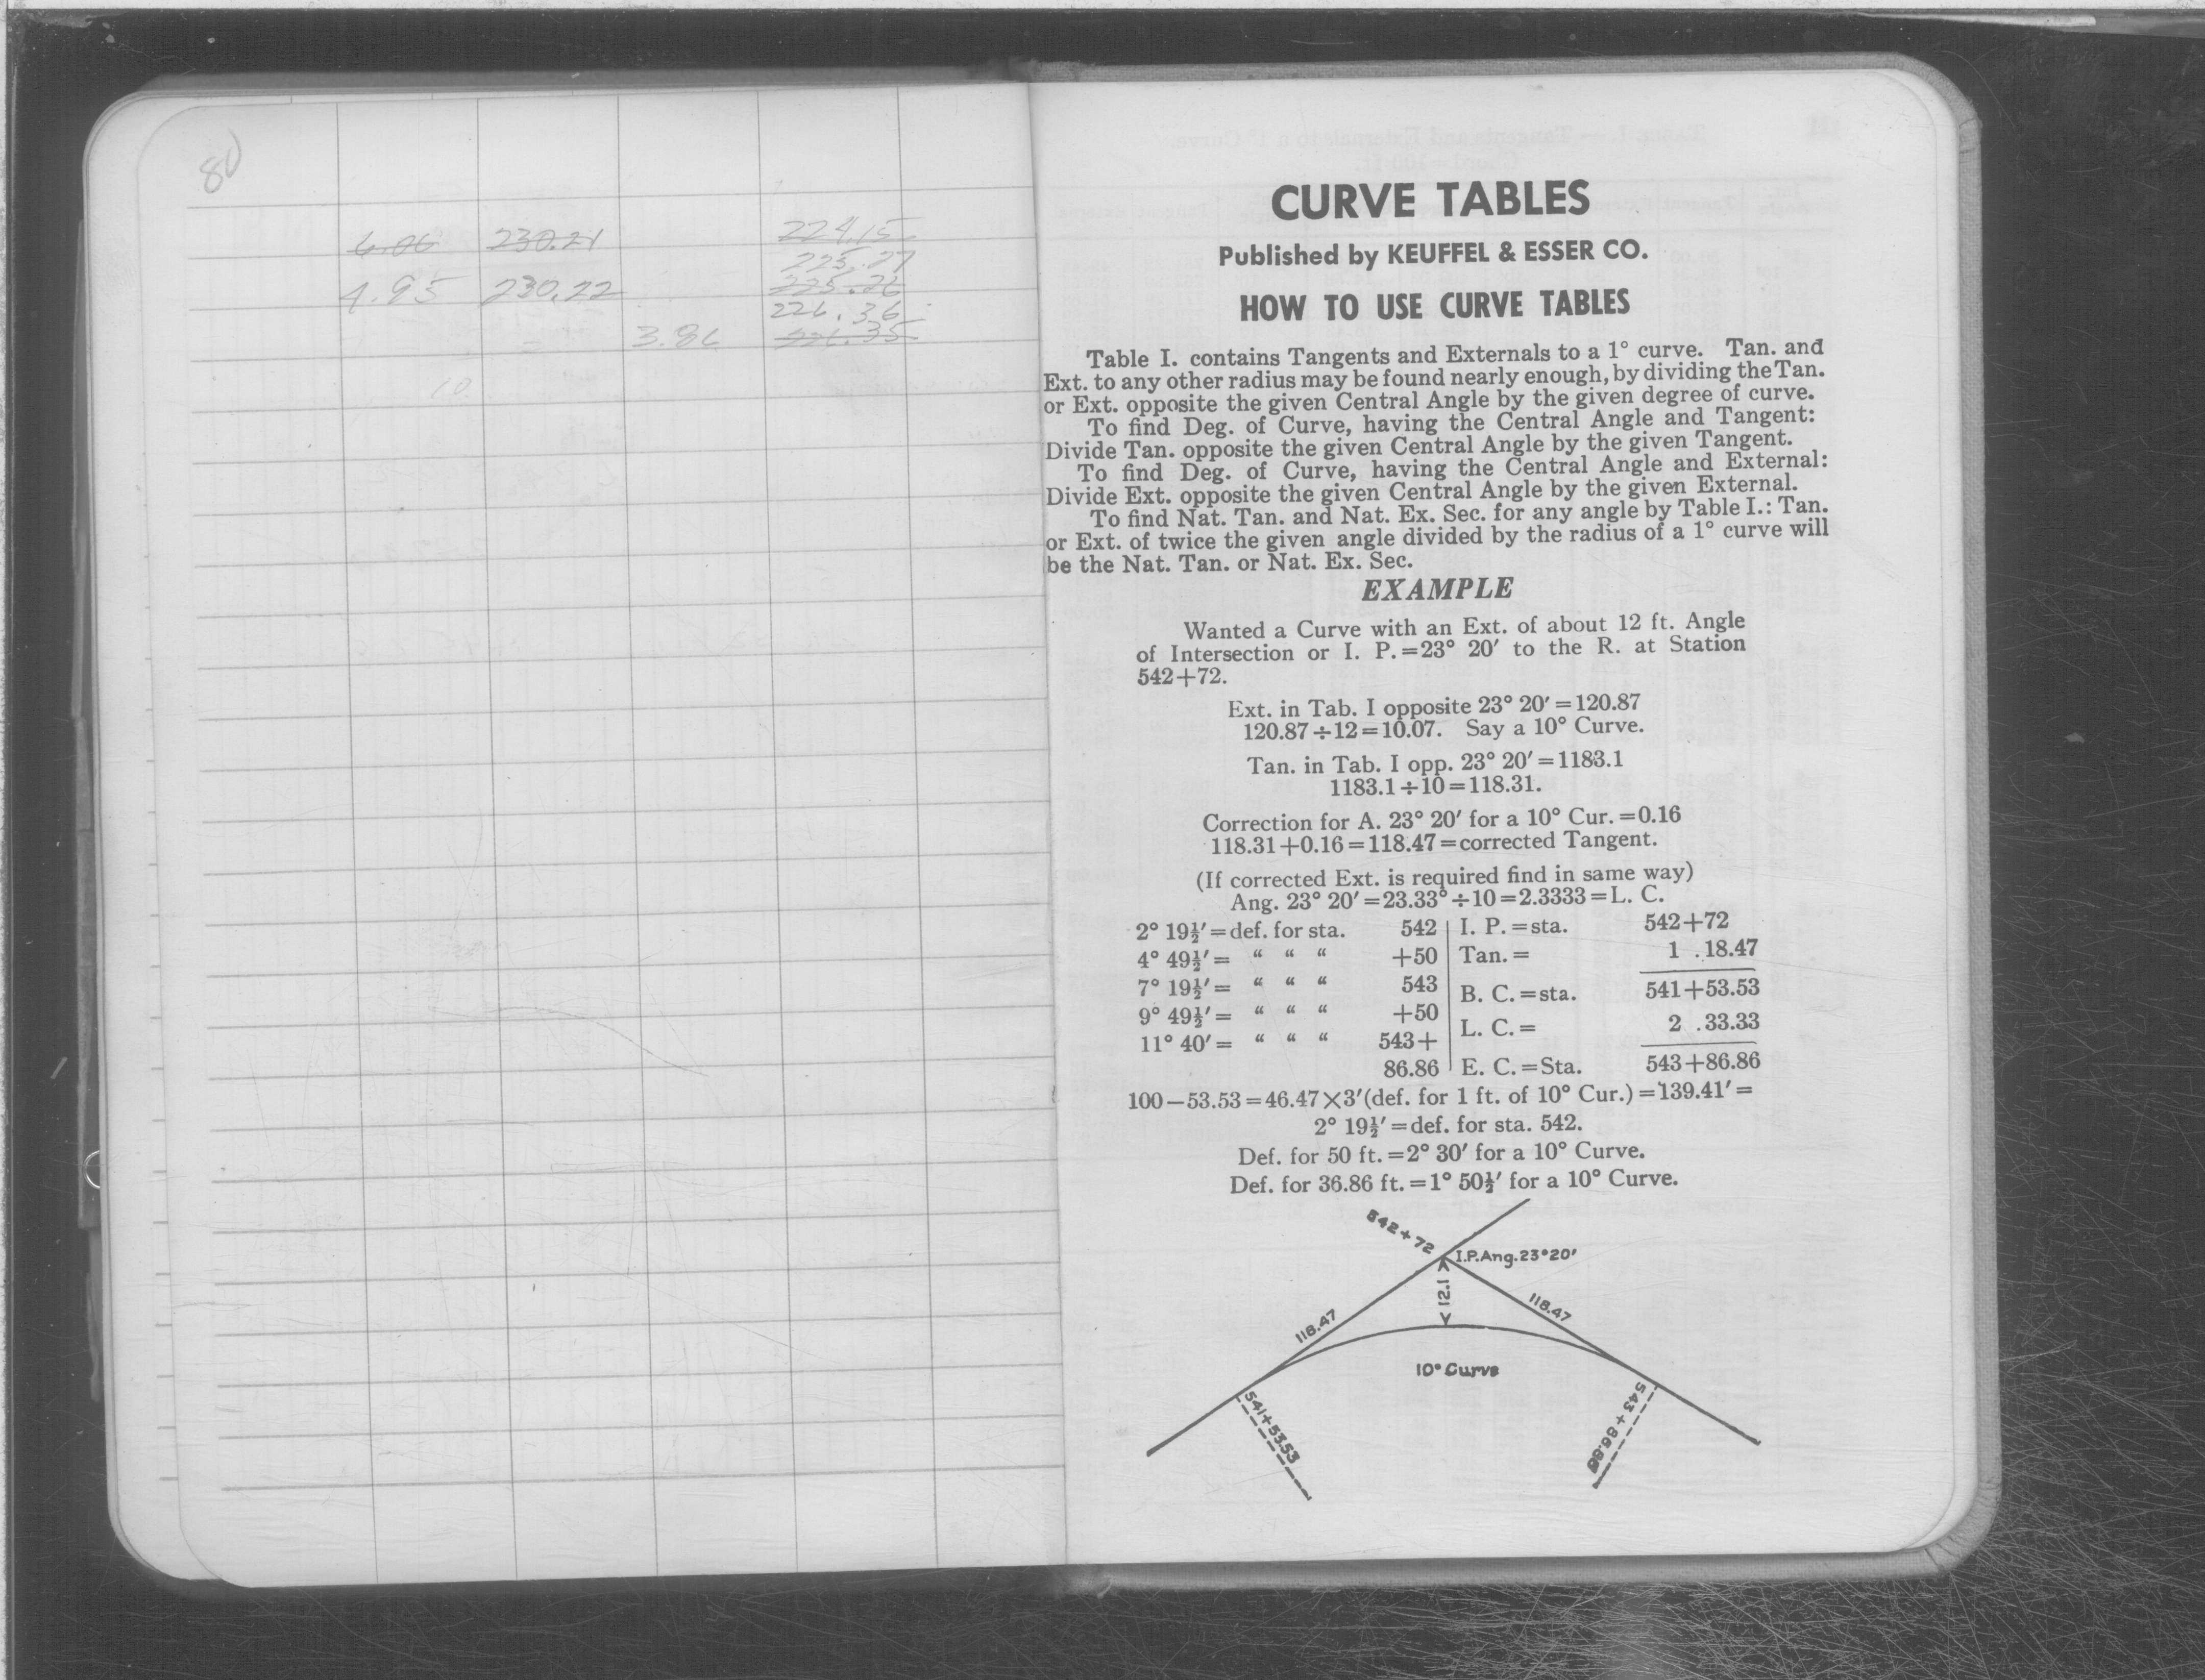 80
6.06 230.21 224.15
225.27
4.95 230.22 225.26
226.36
3.86 226.35
10
CURVE TABLES
Published by KEUFFEL & ESSER CO.
HOW TO USE CURVE TABLES
Table I. contains Tangents and Externals to a 1° curve. Tan. and
Ext. to any other radius may be found nearly enough, by dividing the Tan.
or Ext. opposite the given Central Angle by the given degree of curve.
To find Deg. of Curve, having the Central Angle and Tangent:
Divide Tan. opposite the given Central Angle by the given Tangent.
To find Deg. of Curve, having the Central Angle and External:
Divide Ext. opposite the given Central Angle by the given External.
To find Nat. Tan. and Nat. Ex. Sec. for any angle by Table I.: Tan.
or Ext. of twice the given angle divided by the radius of a 1° curve will
be the Nat. Tan. or Nat. Ex. Sec.
EXAMPLE
Wanted a Curve with an Ext. of about 12 ft. Angle
of Intersection or I. P.=23° 20′ to the R. at Station
542+72.
Ext. in Tab. I opposite 23° 20′=120.87
120.87÷12=10.07. Say a 10° Curve.
Tan. in Tab. I opp. 23° 20′=1183.1
1183.1÷10=118.31.
Correction for A. 23° 20′ for a 10° Cur.=0.16
118.31+0.16=118.47=corrected Tangent.
(If corrected Ext. is required find in same way)
Ang. 23° 20′=23.33°÷10=2.3333=L. C.
2° 19½′=def. for sta. 542 I. P.=sta. 542+72
4° 49½′= “ “ “ +50 Tan.= 1 .18.47
7° 19½′= “ “ “ 543 B. C.=sta. 541+53.53
9° 49½′= “ “ “ +50 L. C.= 2 .33.33
11° 40′= “ “ “ 543+
86.86 E. C.=Sta. 543+86.86
100−53.53=46.47×3′(def. for 1 ft. of 10° Cur.)=139.41′=
2° 19½′=def. for sta. 542.
Def. for 50 ft.=2° 30′ for a 10° Curve.
Def. for 36.86 ft.=1° 50½′ for a 10° Curve.
542+72
I.P.Ang.23°20′
12.1
118.47
118.47
10° Curve
541+53.53
543+86.86